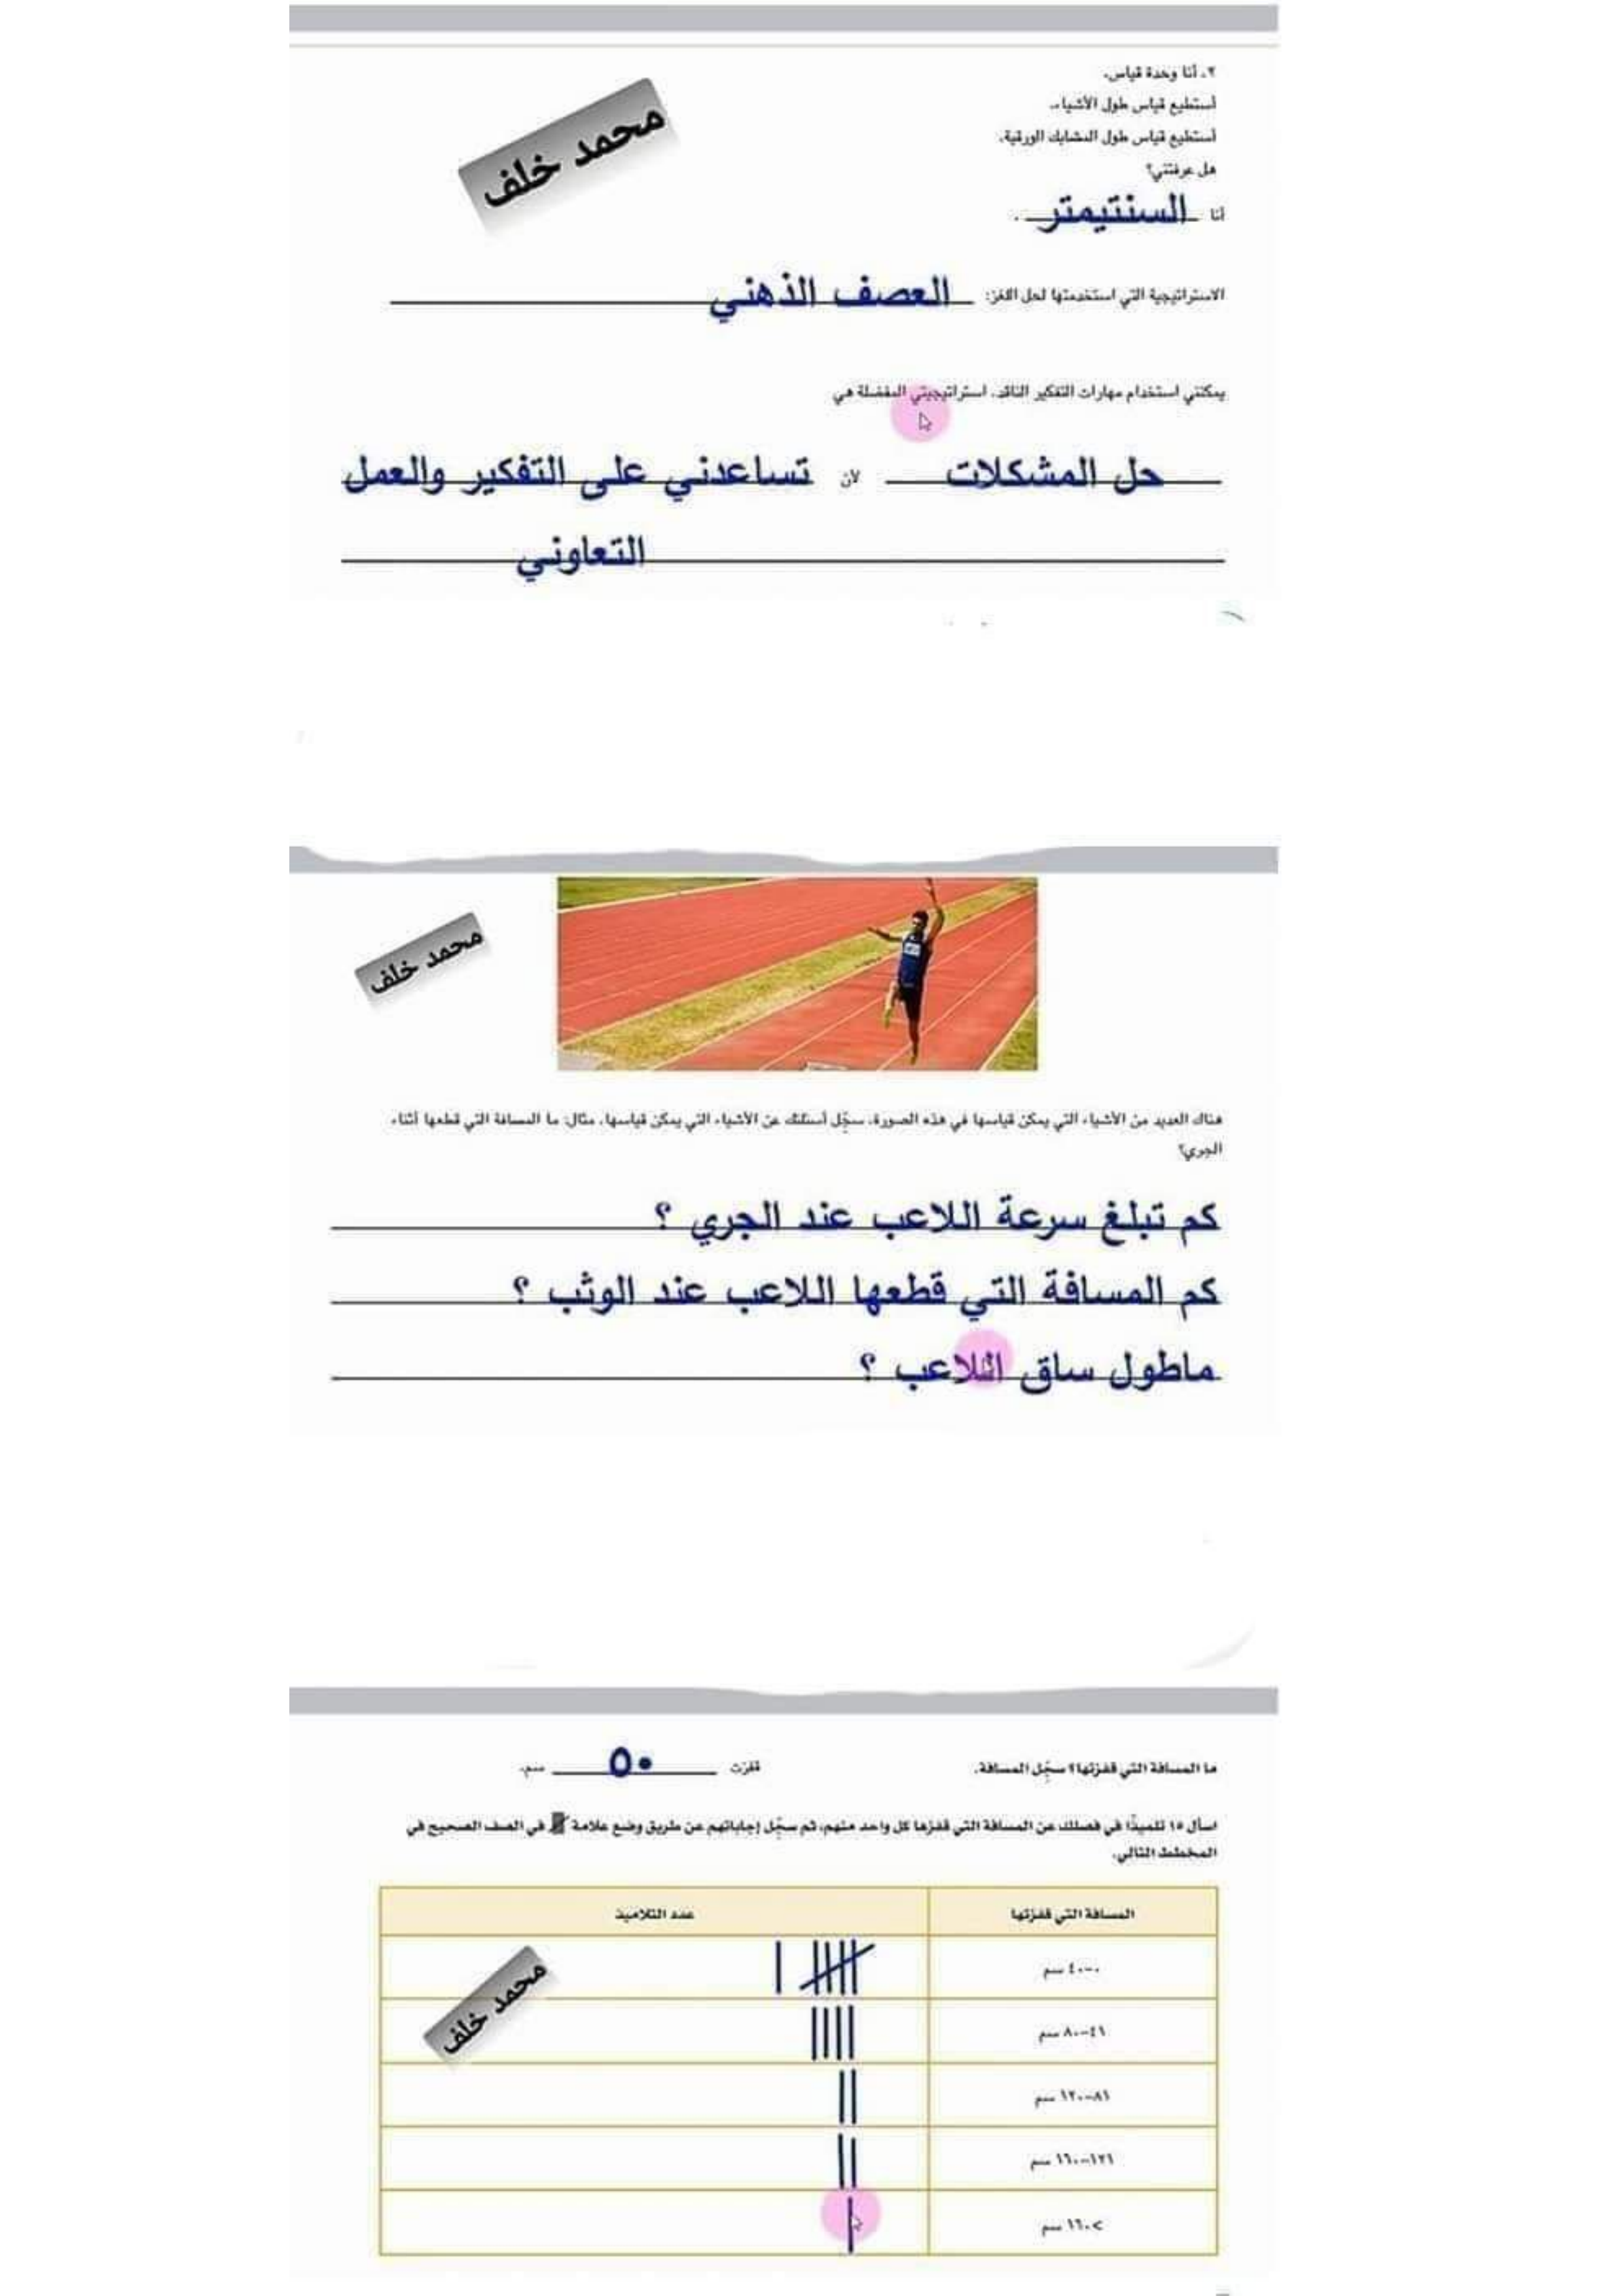 ٢. أنا وحدة قياس.
أستطيع قياس طول الأشياء.
أستطيع قياس طول المشابك الورقية.
هل عرفتني؟
محمد خلف
أنا السنتيمتر .
الاستراتيجية التي استخدمتها لحل اللغز: العصف الذهني
يمكنني استخدام مهارات التفكير الناقد. استراتيجيتي المفضلة هي
حل المشكلات لأن تساعدني على التفكير والعمل
التعاوني
محمد خلف
هناك العديد من الأشياء التي يمكن قياسها في هذه الصورة. سجّل أسئلتك عن الأشياء التي يمكن قياسها. مثال: ما المسافة التي قطعها أثناء
الجري؟
كم تبلغ سرعة اللاعب عند الجري ؟
كم المسافة التي قطعها اللاعب عند الوثب ؟
ماطول ساق اللاعب ؟
ما المسافة التي قفزتها؟ سجّل المسافة. قفزت ٥٠ سم.
اسأل ١٥ تلميذًا في فصلك عن المسافة التي قفزها كل واحد منهم، ثم سجّل إجاباتهم عن طريق وضع علامة في الصف الصحيح في
المخطط التالي.
المسافة التي قفزتها عدد التلاميذ
٠-٤٠ سم
٤١-٨٠ سم
محمد خلف
٨١-١٢٠ سم
١٢١-١٦٠ سم
>١٦٠ سم